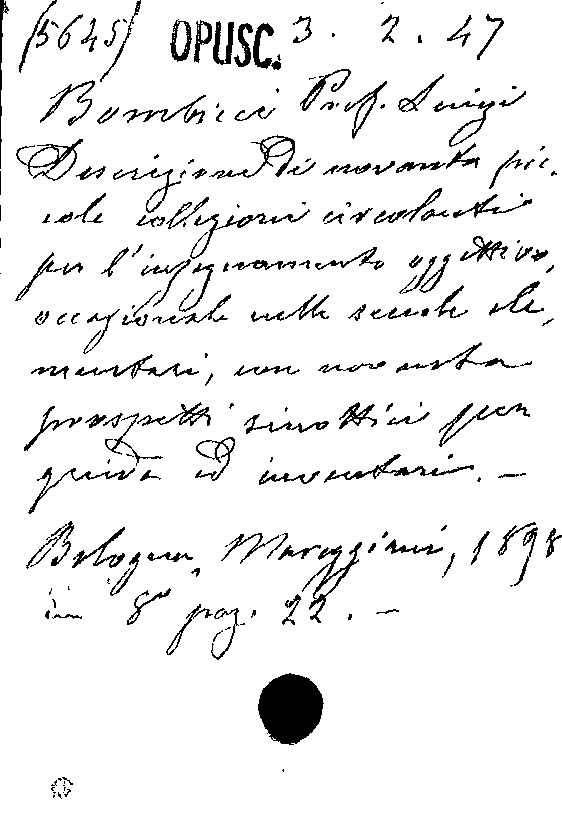 (5645) OPUSC. 3. 2. 47
Bombicci Prof. Luigi
Descrizione di novanta pic-
cole collezioni circolanti
per l'insegnamento oggettivo,
occasionale nelle scuole ele-
mentari, con novanta
prospetti sinottici per
guida ed inventari. —
Bologna, Mareggiani, 1898
in 8° pag. 22. —